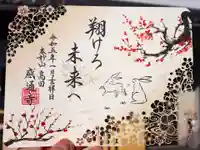 翔けろ
未来へ
令和五年一月吉祥日
高田
感通寺